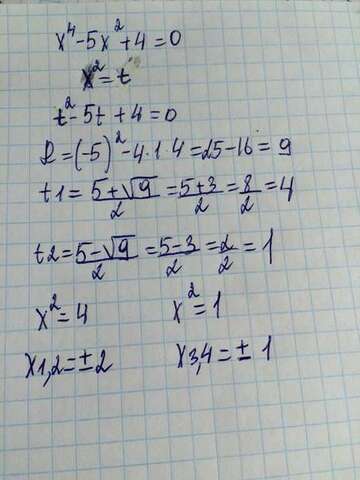 x⁴-5x²+4=0
x²=t
t²-5t+4=0
D=(-5)²-4·1·4=25-16=9
t1=5+√9/2=5+3/2=8/2=4
t2=5-√9/2=5-3/2=2/2=1
x²=4 x²=1
x1,2=±2 x3,4=±1